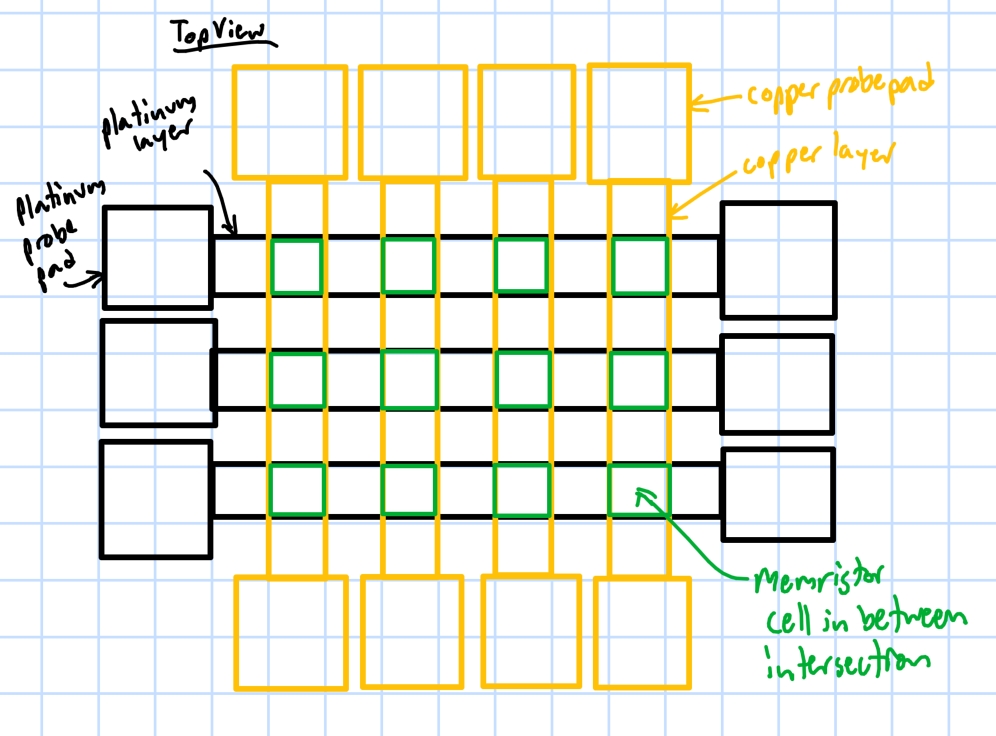 Top View
platinum
layer
platinum
probe
pad
copper probe pad
copper layer
Memristor
cell in between
intersection